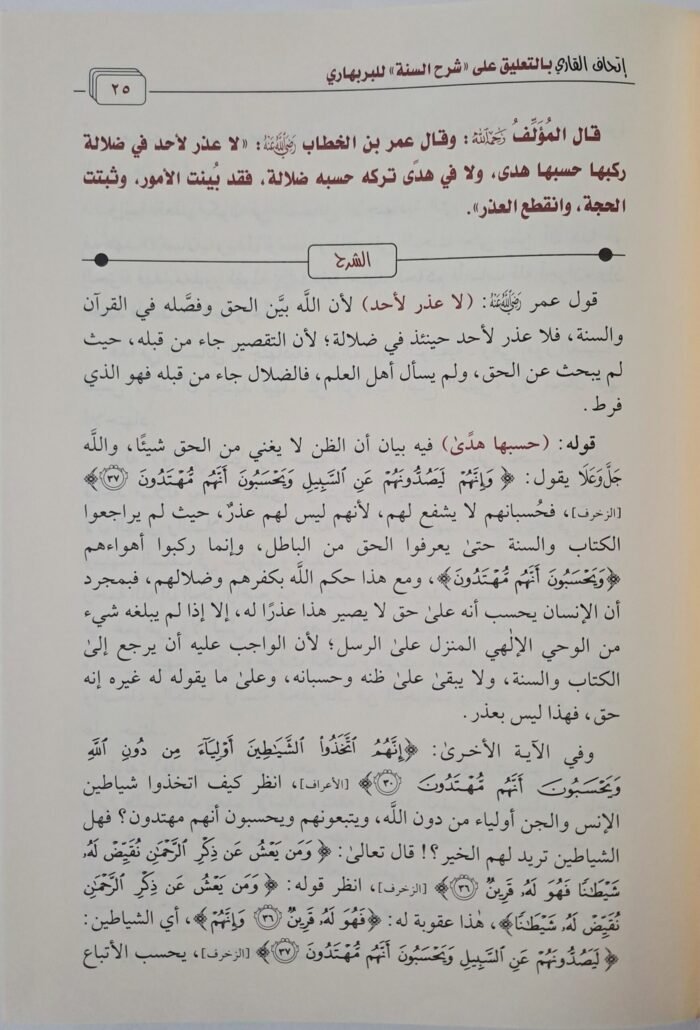 إتحاف القاري بالتعليق على «شرح السنة» للبربهاري
٢٥
قال المؤلِّفُ رَحِمَهُ اللَّهُ: وقال عمر بن الخطاب رَضِيَ اللَّهُ عَنْهُ: «لا عذر لأحد في ضلالة
ركبها حسبها هدى، ولا في هدًى تركه حسبه ضلالة، فقد بُينت الأمور، وثبتت
الحجة، وانقطع العذر».
الشرح
قول عمر رَضِيَ اللَّهُ عَنْهُ: (لا عذر لأحد) لأن اللَّه بيَّن الحق وفصَّله في القرآن
والسنة، فلا عذر لأحد حينئذ في ضلالة؛ لأن التقصير جاء من قبله، حيث
لم يبحث عن الحق، ولم يسأل أهل العلم، فالضلال جاء من قبله فهو الذي
فرط.
قوله: (حسبها هدًىٰ) فيه بيان أن الظن لا يغني من الحق شيئًا، واللَّه
جَلَّ وَعَلَا يقول: ﴿وَإِنَّهُمْ لَيَصُدُّونَهُمْ عَنِ ٱلسَّبِيلِ وَيَحْسَبُونَ أَنَّهُم مُّهْتَدُونَ ٣٧﴾
[الزخرف]، فحُسبانهم لا يشفع لهم، لأنهم ليس لهم عذرٌ، حيث لم يراجعوا
الكتاب والسنة حتىٰ يعرفوا الحق من الباطل، وإنما ركبوا أهواءهم
﴿وَيَحْسَبُونَ أَنَّهُم مُّهْتَدُونَ﴾، ومع هذا حكم اللَّه بكفرهم وضلالهم، فبمجرد
أن الإنسان يحسب أنه علىٰ حق لا يصير هذا عذرًا له، إلا إذا لم يبلغه شيء
من الوحي الإلٰهي المنزل علىٰ الرسل؛ لأن الواجب عليه أن يرجع إلىٰ
الكتاب والسنة، ولا يبقىٰ علىٰ ظنه وحسبانه، وعلىٰ ما يقوله له غيره إنه
حق، فهذا ليس بعذر.
وفي الآية الأخرىٰ: ﴿إِنَّهُمُ ٱتَّخَذُوا۟ ٱلشَّيَـٰطِينَ أَوْلِيَآءَ مِن دُونِ ٱللَّهِ
وَيَحْسَبُونَ أَنَّهُم مُّهْتَدُونَ ٣٠﴾ [الأعراف]، انظر كيف اتخذوا شياطين
الإنس والجن أولياء من دون اللَّه، ويتبعونهم ويحسبون أنهم مهتدون؟ فهل
الشياطين تريد لهم الخير؟! قال تعالىٰ: ﴿وَمَن يَعْشُ عَن ذِكْرِ ٱلرَّحْمَـٰنِ نُقَيِّضْ لَهُۥ
شَيْطَـٰنًا فَهُوَ لَهُۥ قَرِينٌ ٣٦﴾ [الزخرف]، انظر قوله: ﴿وَمَن يَعْشُ عَن ذِكْرِ ٱلرَّحْمَـٰنِ
نُقَيِّضْ لَهُۥ شَيْطَـٰنًا﴾، هٰذا عقوبة له: ﴿فَهُوَ لَهُۥ قَرِينٌ ٣٦ وَإِنَّهُمْ﴾، أي الشياطين:
﴿لَيَصُدُّونَهُمْ عَنِ ٱلسَّبِيلِ وَيَحْسَبُونَ أَنَّهُم مُّهْتَدُونَ ٣٧﴾ [الزخرف]، يحسب الأتباع